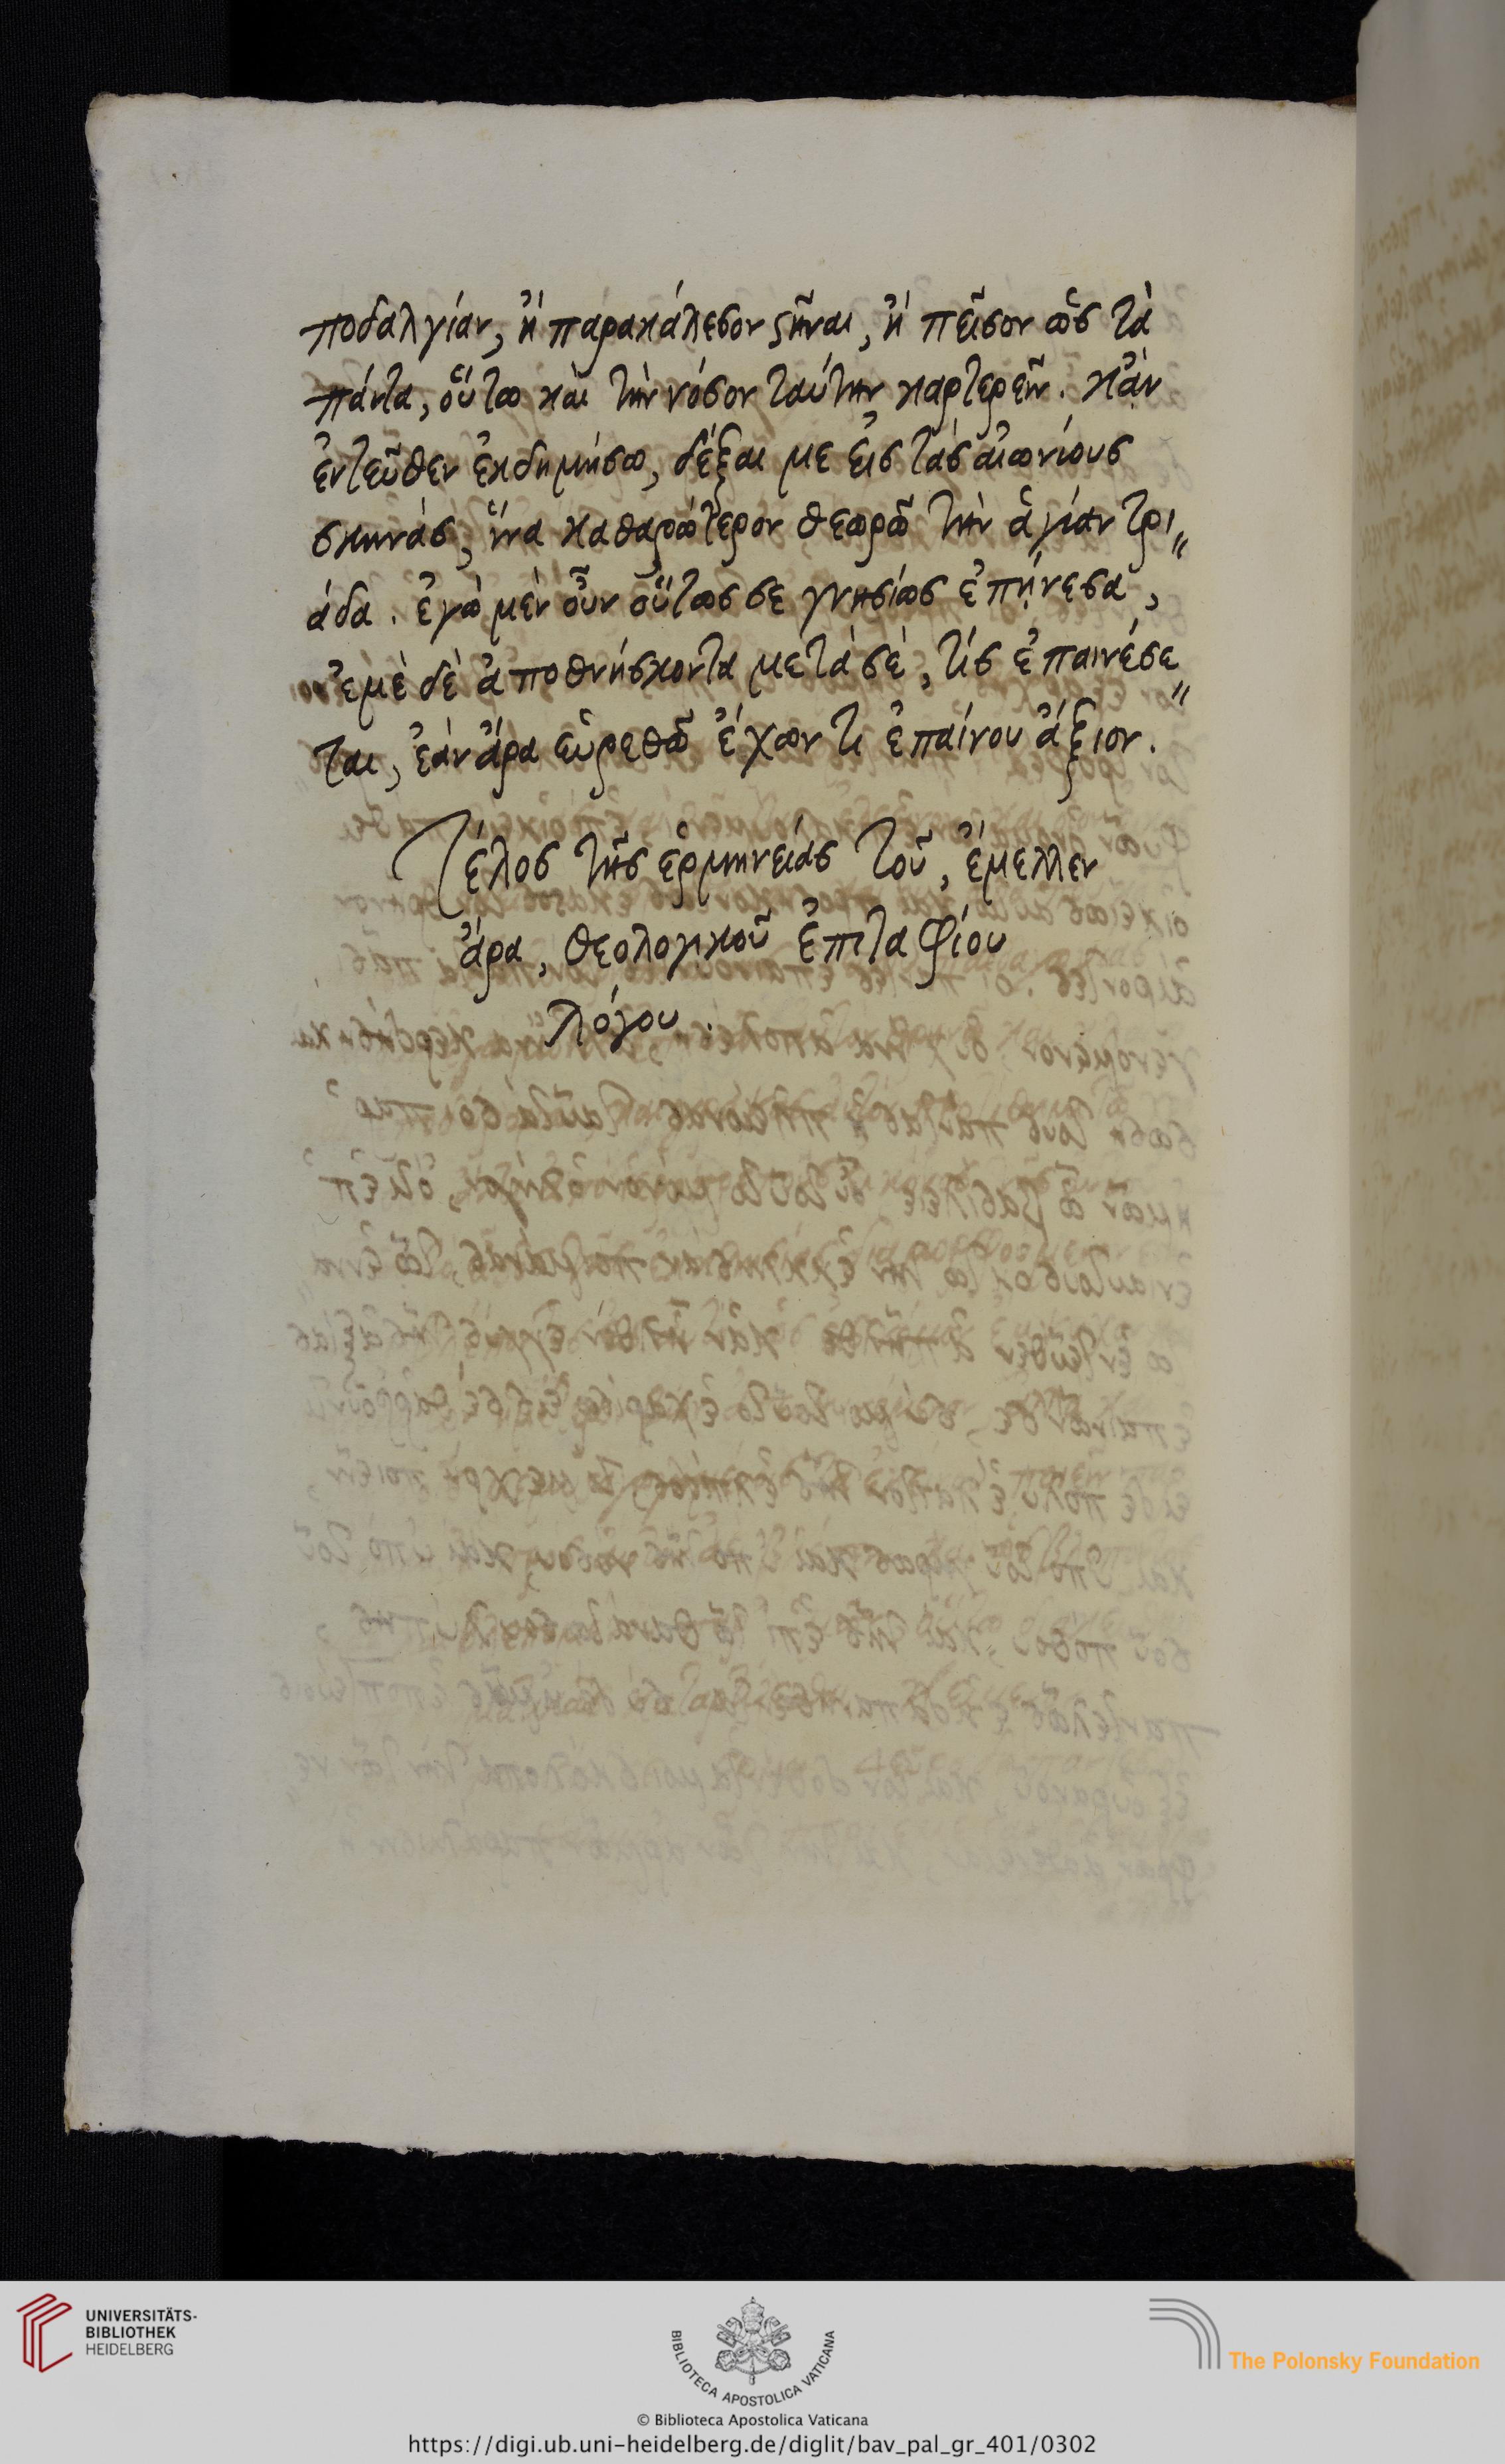 ποδαλγίαν, ἢ παρακάλεσον ϛῆναι, ἢ πεῖσον ὡς τὰ
πάντα, οὕτω καὶ τὴν νόσον ταύτην καρτερεῖν. κἂν
ἐντεῦθεν ἐκδημήσω, δέξαι με εἰς τὰς αἰωνίους
σκηνάς, ἵνα καθαρώτερον θεωρῶ τὴν ἁγίαν τρι〃
άδα. ἐγὼ μὲν οὖν οὕτως σε γνησίως ἐπῄνεσα,
ἐμὲ δὲ ἀποθνήσκοντα μετὰ σὲ, τίς ἐπαινέσε〃
ται, ἐὰν ἄρα εὑρεθῶ ἔχων τι ἐπαίνου ἄξιον.
Τέλος τῆς ἑρμηνείας τοῦ, ἔμελλεν
ἄρα, θεολογικοῦ ἐπιταφίου
λόγου.
UNIVERSITÄTS-
BIBLIOTHEK
HEIDELBERG
BIBLIOTECA APOSTOLICA VATICANA
The Polonsky Foundation
© Biblioteca Apostolica Vaticana
https://digi.ub.uni-heidelberg.de/diglit/bav_pal_gr_401/0302